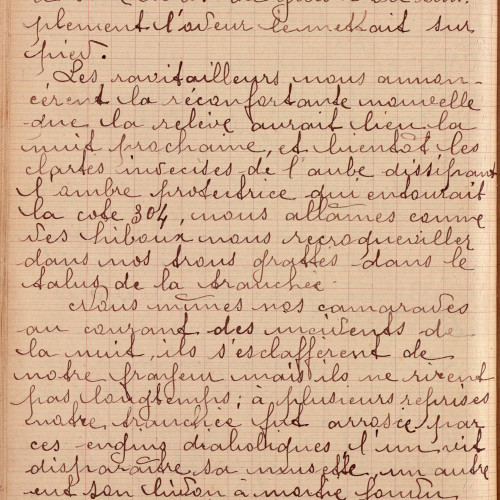 plement l'odeur le mettait sur
pied.
Les ravitailleurs nous annon-
cèrent la réconfortante nouvelle
que la relève aurait lieu la
nuit prochaine, et bientôt les
clartés indécises de l'aube dissipant
l'ombre protectrice qui entourait
la cote 304, nous allâmes comme
des hiboux nous recroqueviller
dans nos trous grattés dans le
talus de la tranchée.
Nous mîmes nos camarades
au courant des incidents de
la nuit, ils s'esclaffèrent de
notre frayeur mais ils ne rirent
pas longtemps; à plusieurs reprises
notre tranchée fut arrosée par
ces engins diaboliques l'un vit
disparaître sa musette, un autre
eut son bidon à moitié fondu